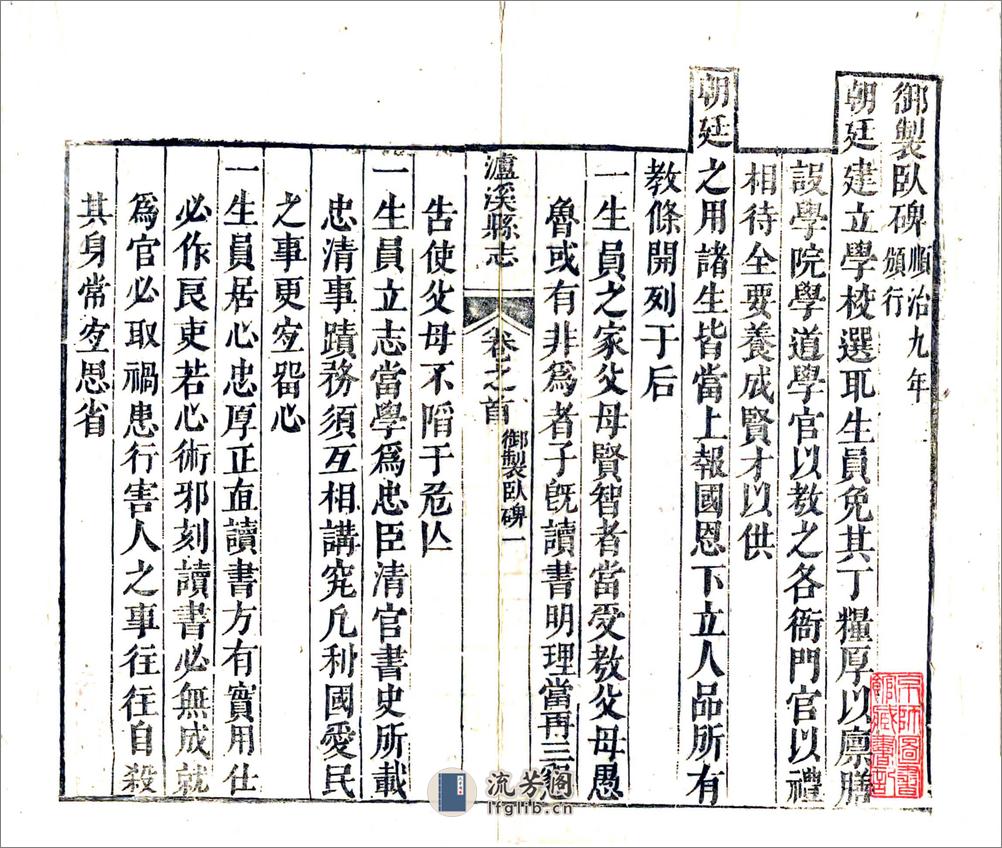 御製臥碑順治九年頒行
朝廷建立學校選取生員免其丁糧厚以廩膳
設學院學道學官以教之各衙門官以禮
相待全要養成賢才以供
朝廷之用諸生皆當上報國恩下立人品所有
教條開列于后
一生員之家父母賢智者當受教父母愚
魯或有非爲者子旣讀書明理當再三懇
瀘溪縣志 卷之首 御製臥碑 一
告使父母不陷于危亾
一生員立志當學爲忠臣清官書史所載
忠清事蹟務須互相講究凡利國愛民
之事更宐畱心
一生員居心忠厚正直讀書方有實用仕
必作良吏若心術邪刻讀書必無成就
爲官必取禍患行害人之事往往自殺
其身常宐思省
流芳阁
lfglib.cn